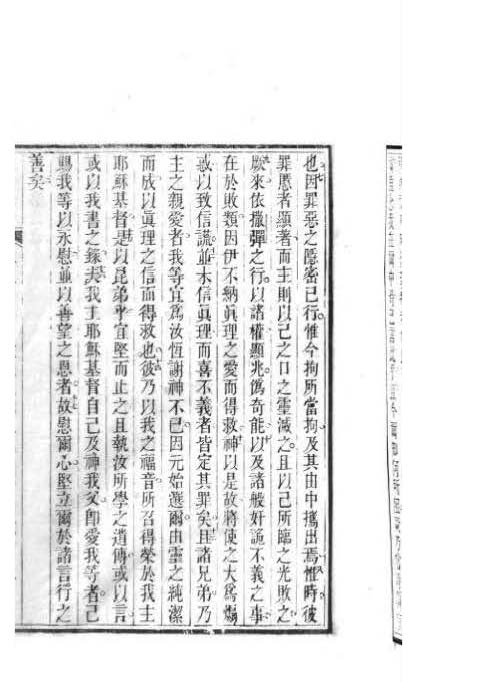 也因罪惡之隱密已行惟今拘所當拘及其由中攜出焉惟時彼
罪慝者顯著而主則以己之口之靈滅之且以己所臨之光敗之
厥來依撒彈之行以諸權顯兆僞奇能以及諸般奸詭不義之事
在於敗類因伊不納眞理之愛而得救神以是故將使之大爲煽
惑以致信謊並未信眞理而喜不義者皆定其罪矣且諸兄弟乃
主之親愛者我等宜爲汝恆謝神不已因元始選爾由靈之純潔
而成以眞理之信而得救也彼乃以我之福音所召得榮於我主
耶穌基督是以昆弟乎宜堅而止之且執汝所學之遺傳或以言
或以我書之緣夫我主耶穌基督自己及神我父卽愛我等者己
賜我等以永慰並以善望之恩者故慰爾心堅立爾於諸言行之
善矣